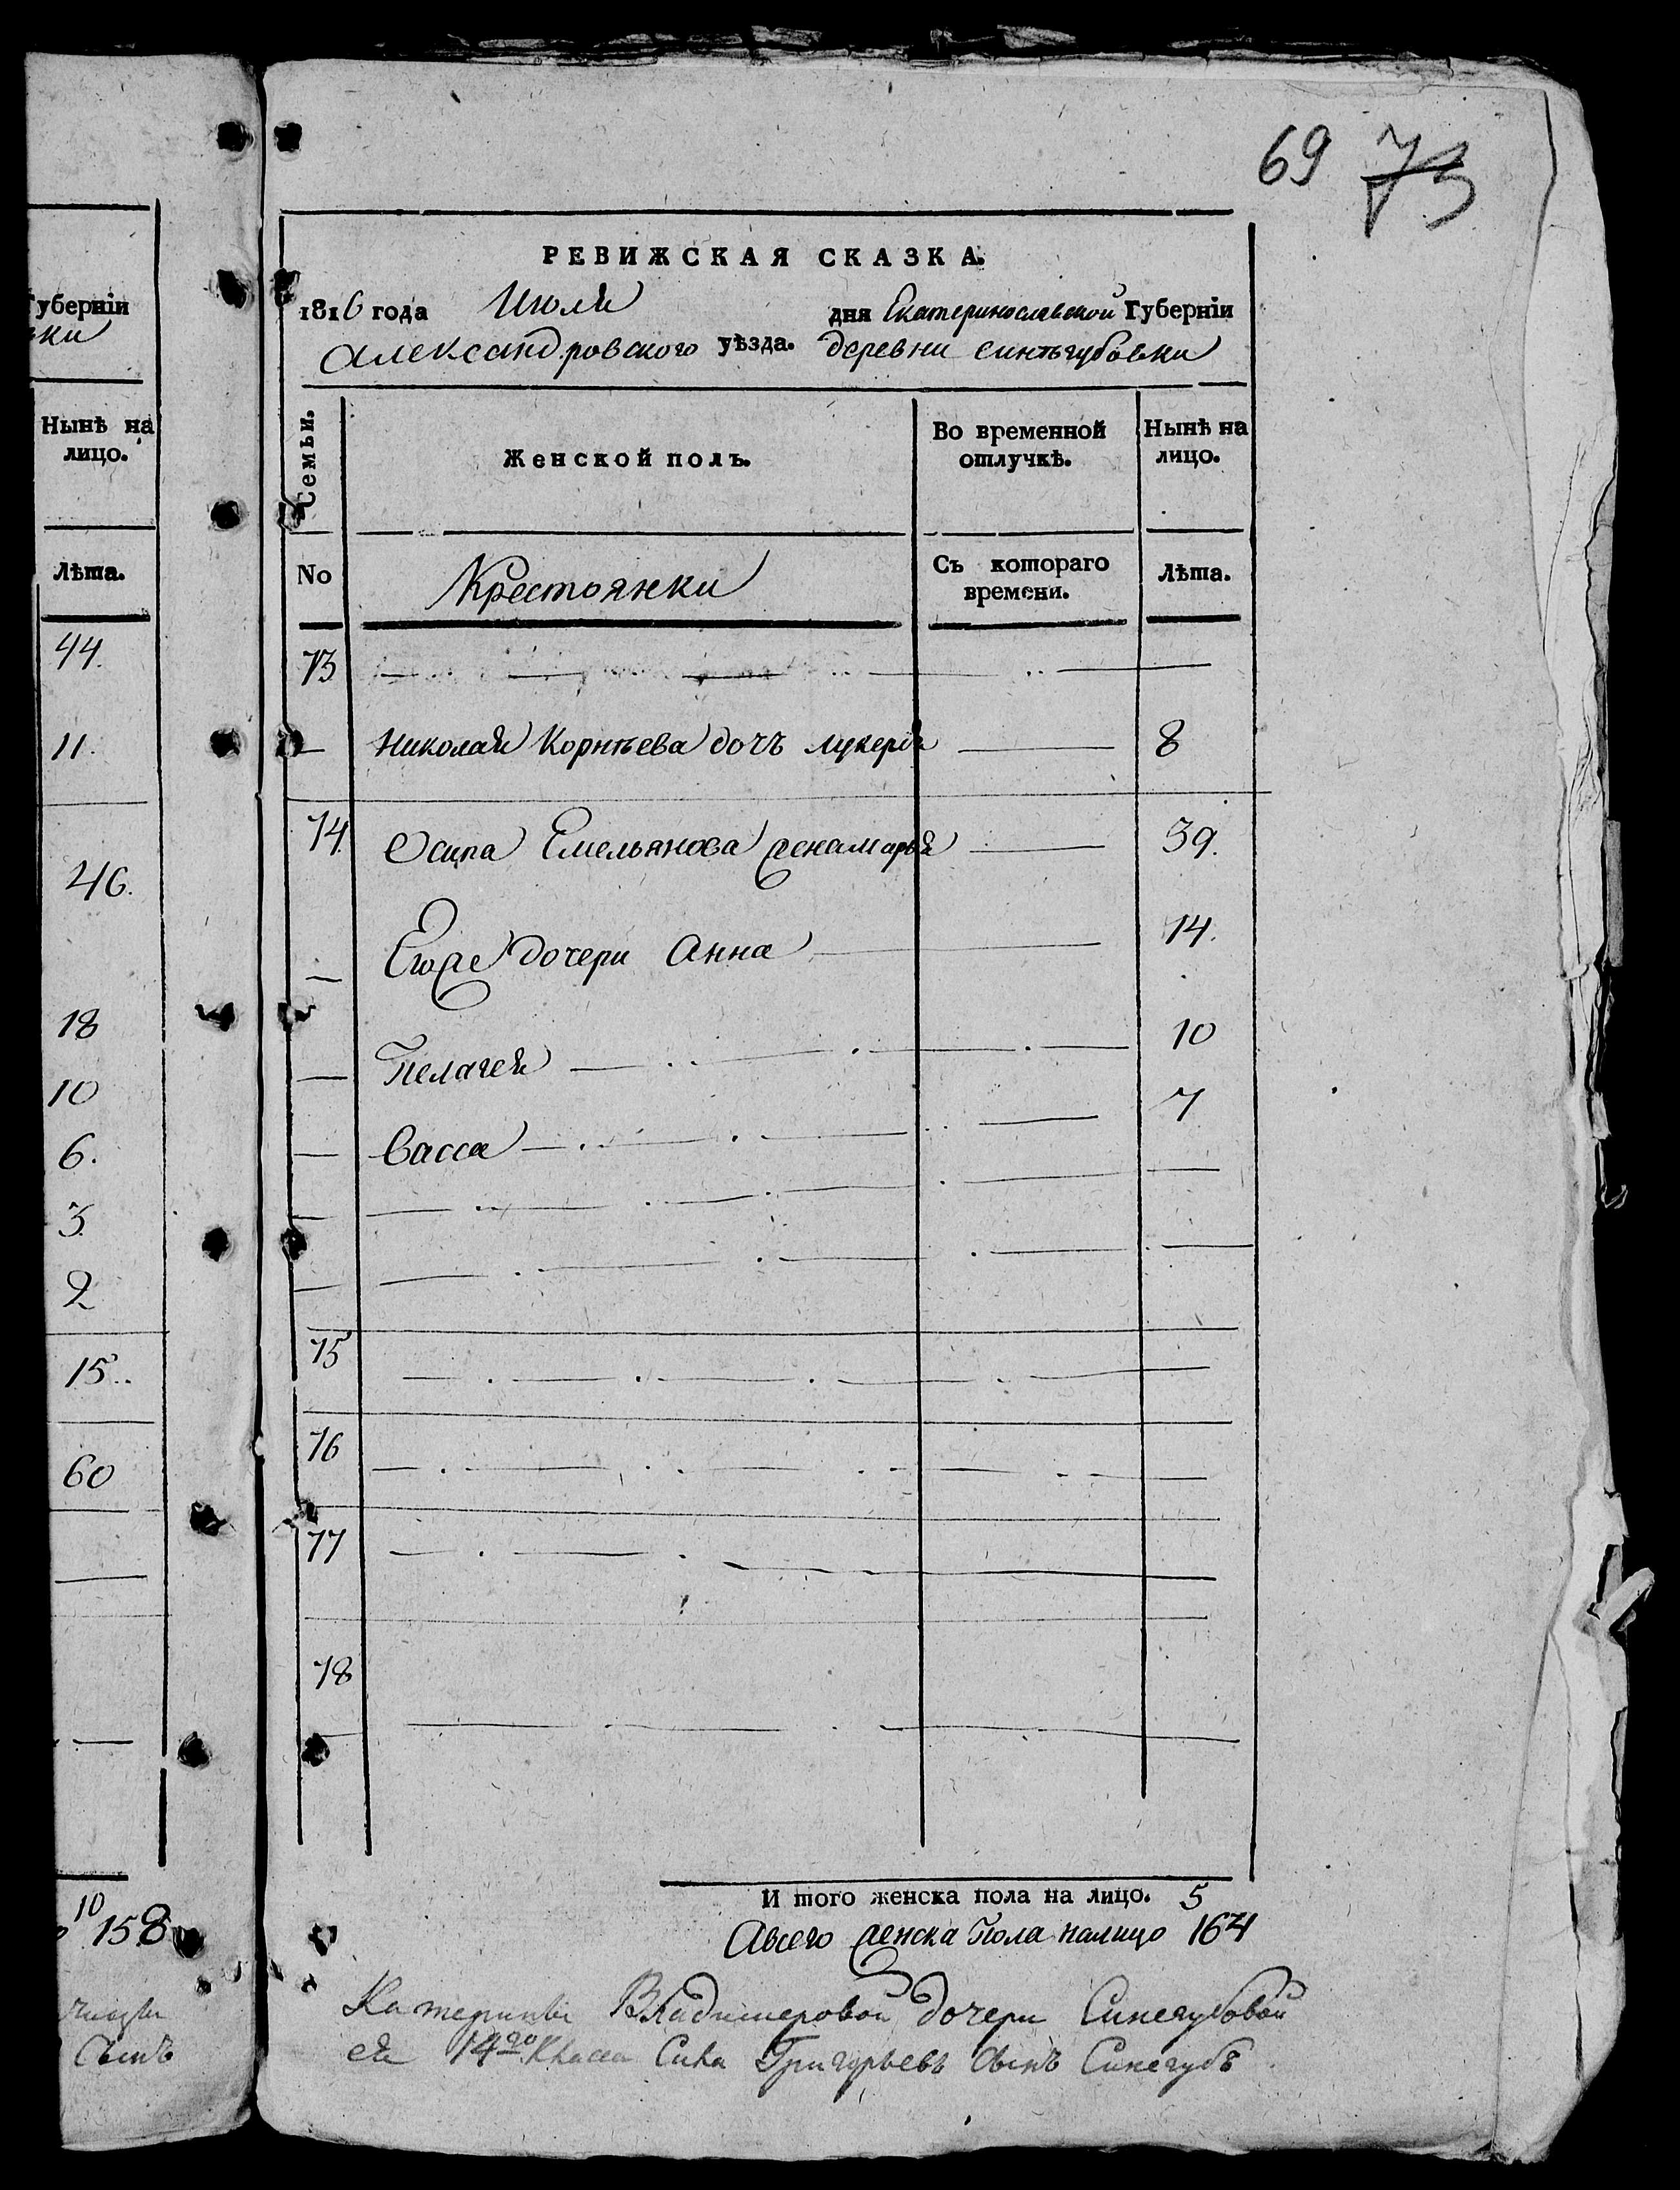 69 73
РЕВИЖСКАЯ СКАЗКА.
1816 года Июля дня Екатеринославской Губерніи
Александровского уѣзда. деревни синѣгубовки
Семьи. Женской полъ. Во временной отлучкѣ. Нынѣ на лицо.
No Крестьянки Съ котораго времени. Лѣта.
73
Николая Корнѣева дочь лукерья 8
74 Осипа Емельянова жена марья 39.
Егоже дочери Анна 14.
Пелагея 10
Васса 7
75
76
77
78
И того женска пола на лицо. 5
Авсего женска Пола налицо 164
Катерины Владимеровой дочери Синегубовой
14го Класса Сила Григорьевъ сынъ Синегубъ
Губерніи
вки
Нынѣ на
лицо.
Лѣта.
44.
11.
46.
18
10
6.
3.
2
15..
60
10
158
Сынъ